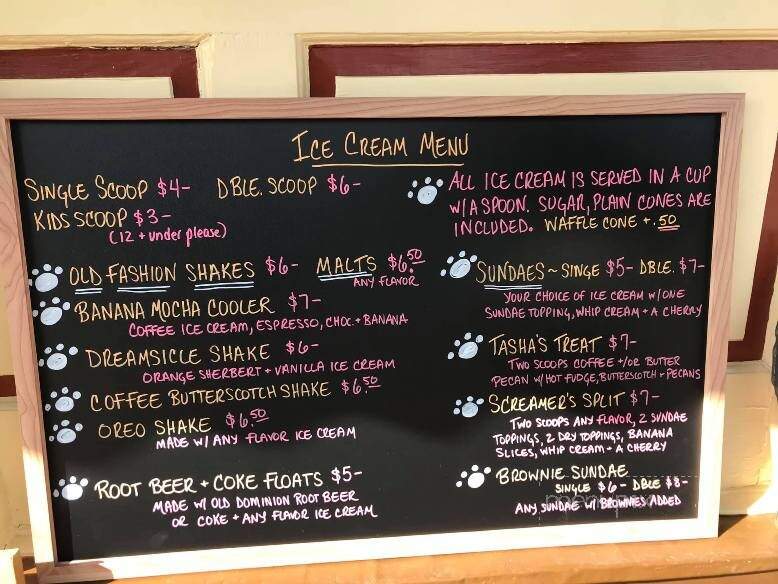 ICE CREAM MENU
SINGLE SCOOP $4- DBLE. SCOOP $6-
KIDS SCOOP $3-
(12 + under please)
OLD FASHION SHAKES $6- MALTS $6.50
ANY FLAVOR
BANANA MOCHA COOLER $7-
COFFEE ICE CREAM, ESPRESSO, CHOC. + BANANA
DREAMSICLE SHAKE $6-
ORANGE SHERBERT + VANILLA ICE CREAM
COFFEE BUTTERSCOTCH SHAKE $6.50
OREO SHAKE $6.50
MADE W/ ANY FLAVOR ICE CREAM
ROOT BEER + COKE FLOATS $5-
MADE W/ OLD DOMINION ROOT BEER
OR COKE + ANY FLAVOR ICE CREAM
ALL ICE CREAM IS SERVED IN A CUP
W/A SPOON. SUGAR, PLAIN CONES ARE
INCLUDED. WAFFLE CONE +.50
SUNDAES ~ SINGE $5- DBLE. $7-
YOUR CHOICE OF ICE CREAM W/ONE
SUNDAE TOPPING, WHIP CREAM + A CHERRY
TASHA'S TREAT $7-
TWO SCOOPS COFFEE +/OR BUTTER
PECAN W/HOT FUDGE, BUTTERSCOTCH + PECANS
SCREAMER'S SPLIT $7-
TWO SCOOPS ANY FLAVOR, 2 SUNDAE
TOPPINGS, 2 DRY TOPPINGS, BANANA
SLICES, WHIP CREAM + A CHERRY
BROWNIE SUNDAE
SINGLE $6- DBLE $8-
ANY SUNDAE W/ BROWNIES ADDED